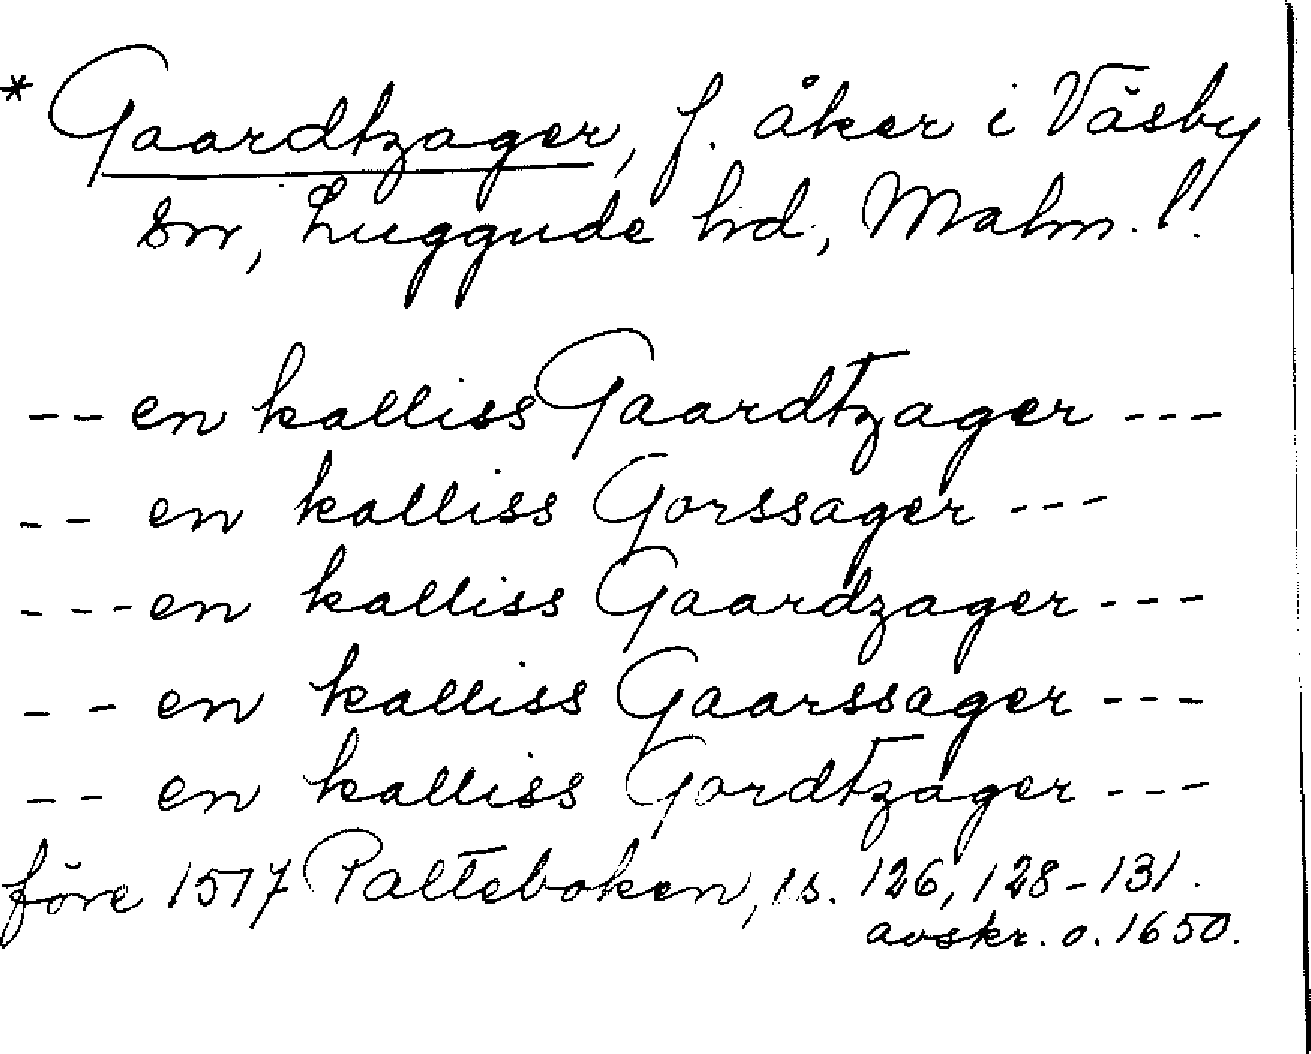 * Gaardtzager, f. åker i Väsby
sn, Luggude hd, Malm. l.
-- en kalliss Gaardtzager ---
-- en kalliss Gorssager ---
--- en kalliss Gaardzager ---
-- en kalliss Gaarssager ---
-- en kalliss Gordtzager ---
före 1517 Palteboken, s. 126, 128-131.
avskr. o. 1650.